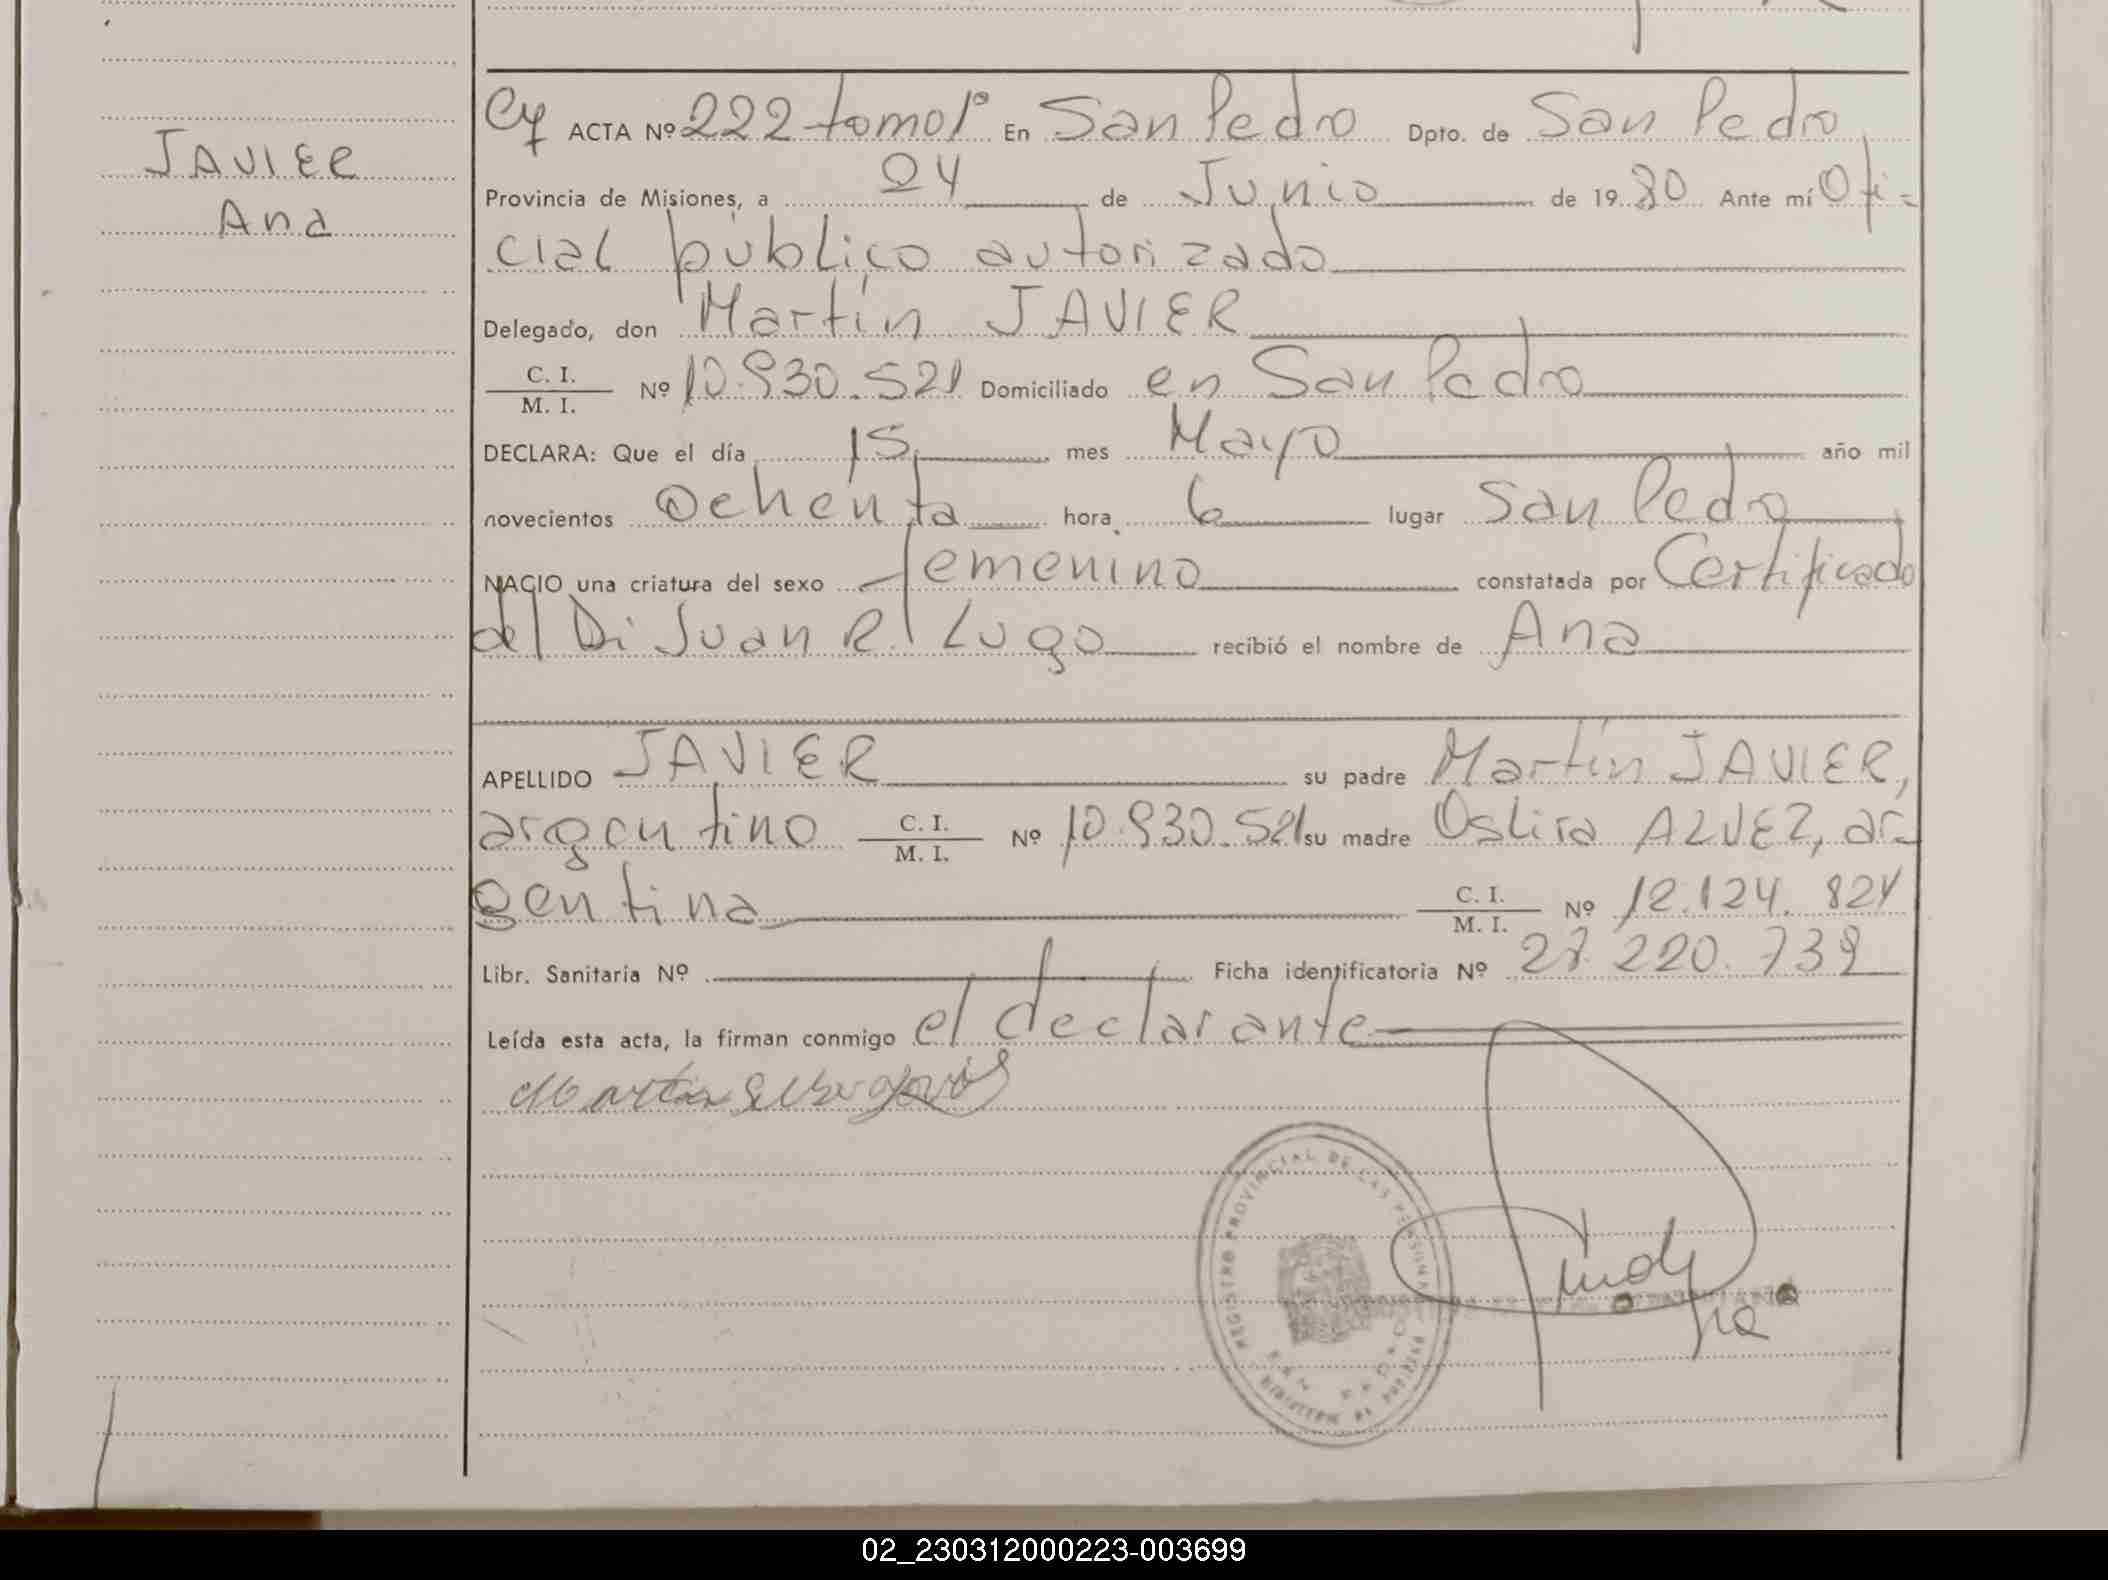 JAVIER
Ana
ACTA Nº 222 tomo 1º En San Pedro Dpto. de San Pedro
Provincia de Misiones, a 24 de Junio de 1980 Ante mí Ofi-
cial público autorizado
Delegado, don Martín JAVIER
C. I.
M. I. Nº 10.930.521 Domiciliado en San Pedro
DECLARA: Que el día 15 mes Mayo año mil
novecientos Ochenta hora 6 lugar San Pedro
NACIO una criatura del sexo femenino constatada por Certificado
del Dr Juan R. Lugo recibió el nombre de Ana
APELLIDO JAVIER su padre Martín JAVIER,
argentino C. I. M. I. Nº 10.930.521 su madre ALVEZ, ar-
gentina C. I. M. I. Nº 12.124.824
Libr. Sanitaria Nº Ficha identificatoria Nº 27.220.739
Leída esta acta, la firman conmigo el declarante
REGISTRO PROVINCIAL DE LAS PERSONAS
02_230312000223-003699